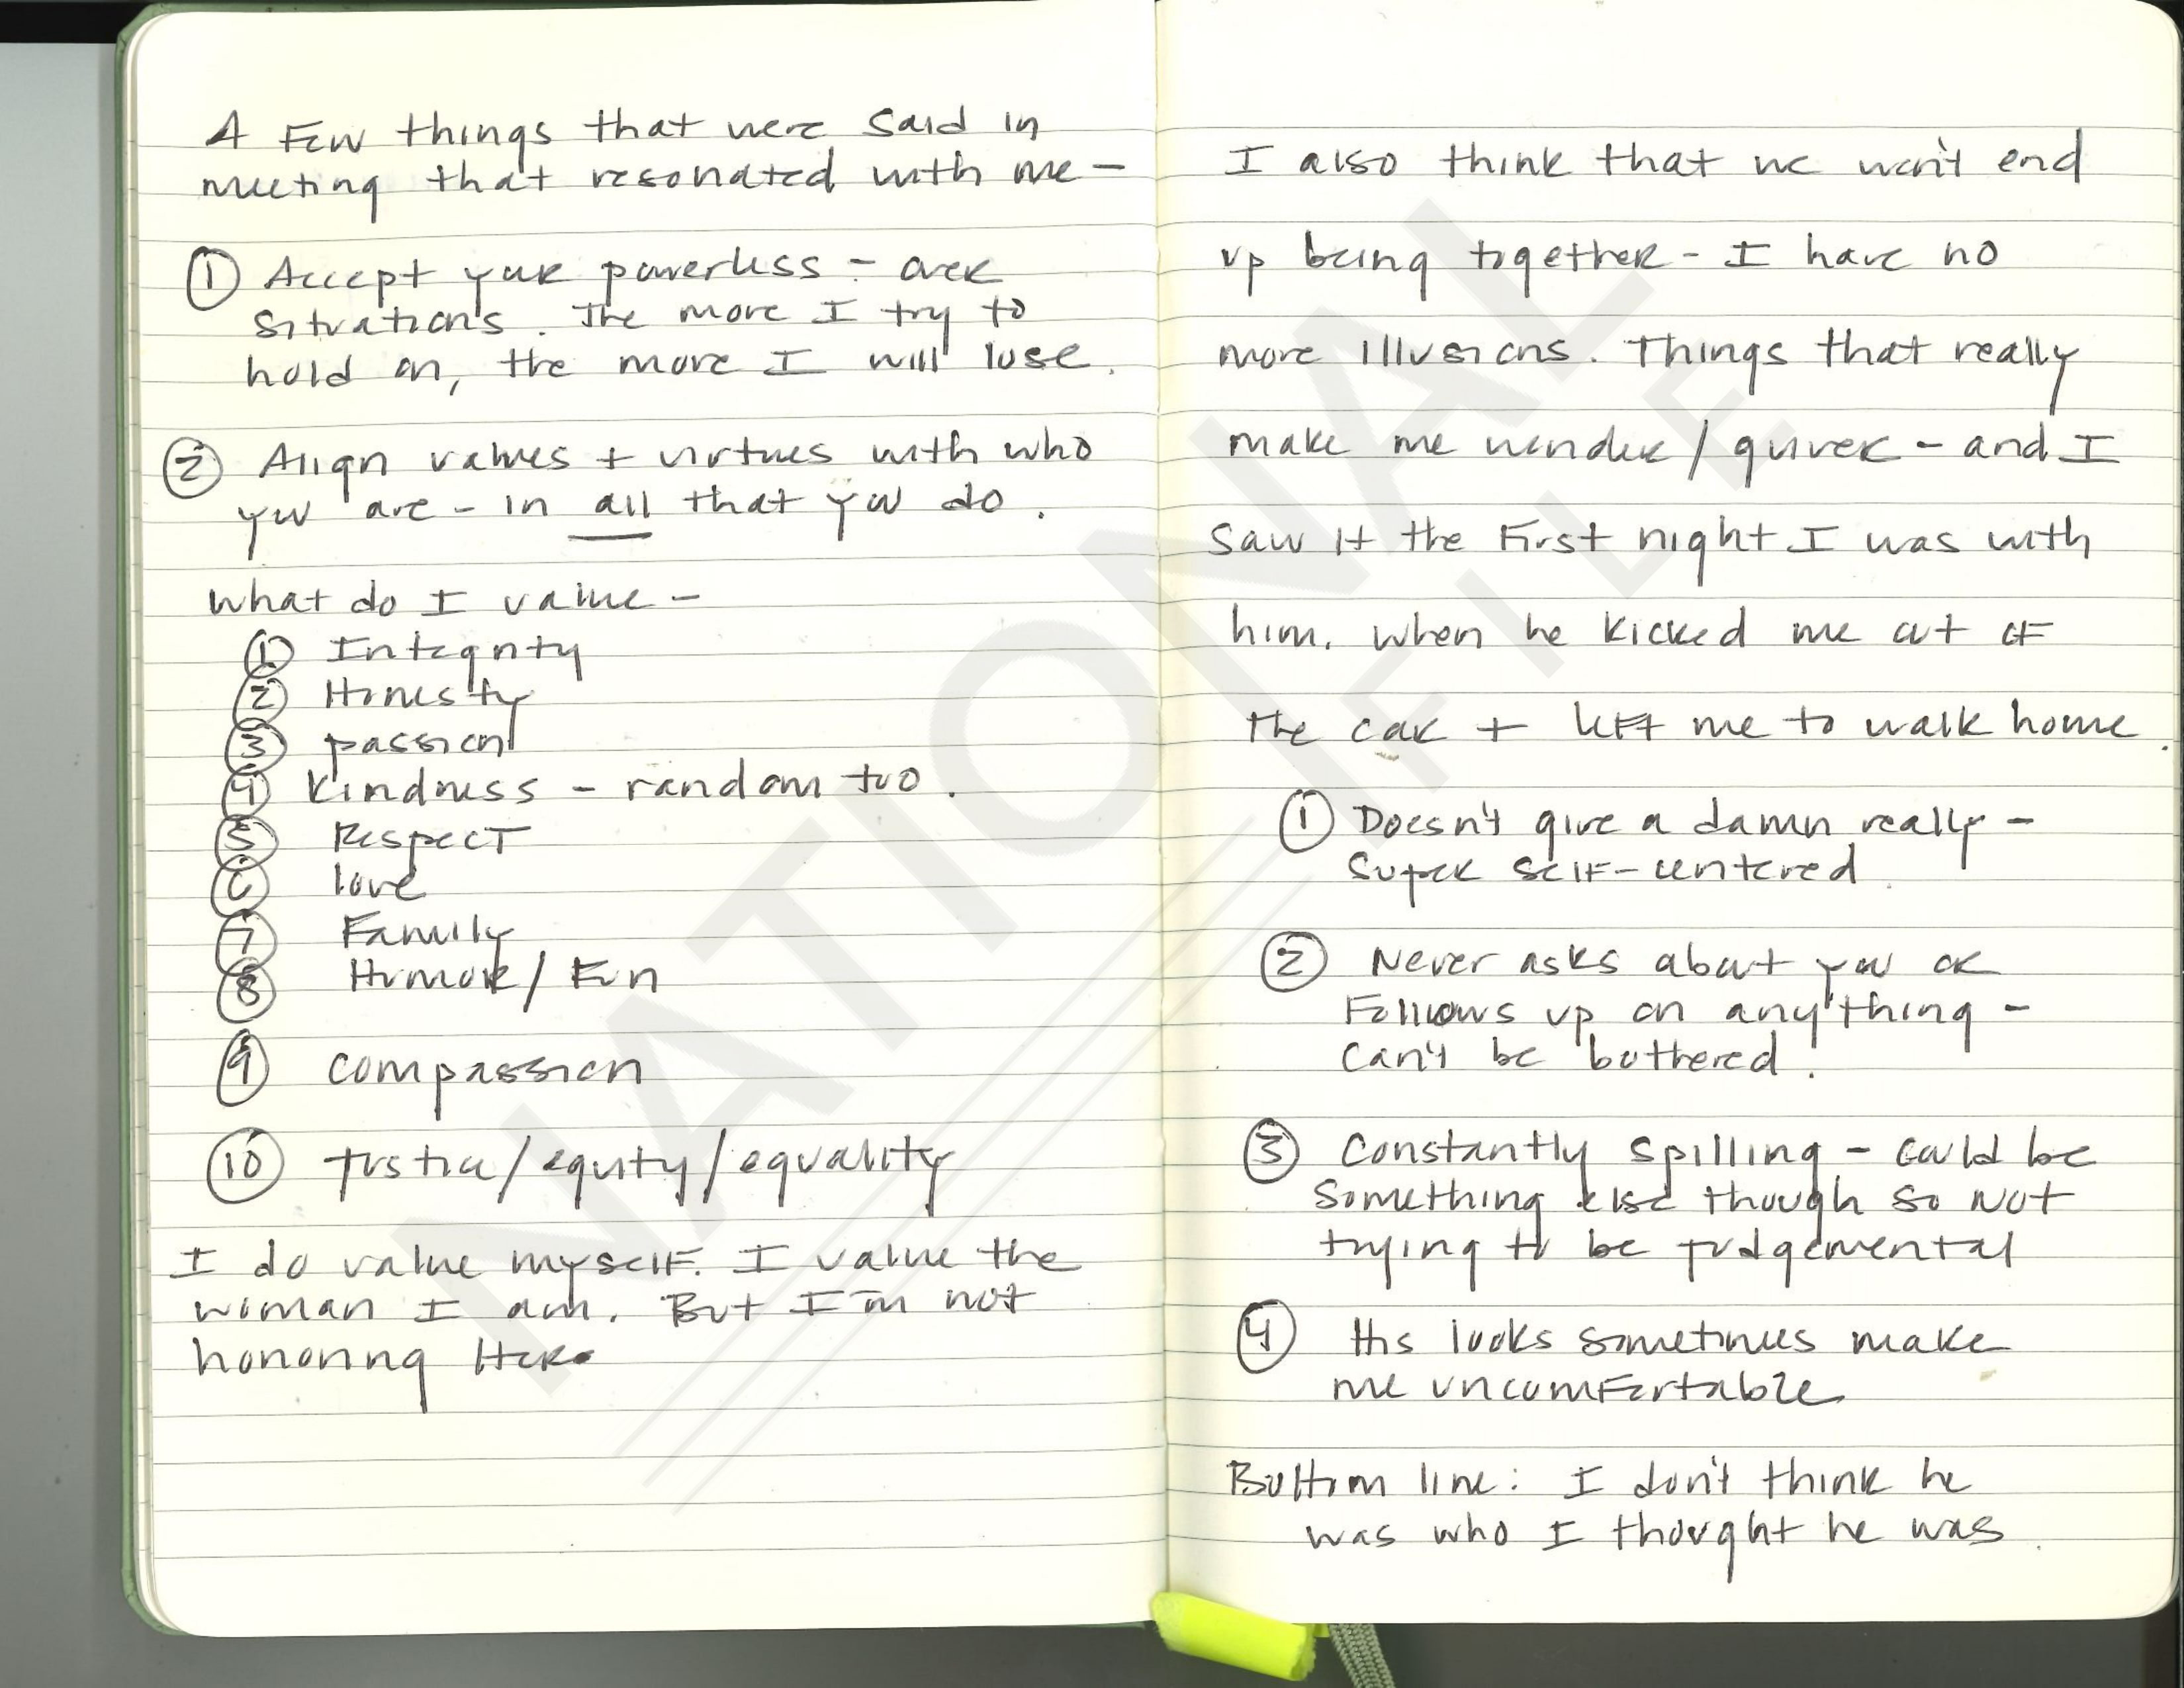 A Few things that were said in
meeting that resonated with me -
① Accept your powerless - over
situations. The more I try to
hold on, the more I will lose.
② Align values + virtues with who
you are - in all that you do.
What do I value -
① Integrity
② Honesty
③ passion
④ Kindness - random too.
⑤ Respect
⑥ love
⑦ Family
⑧ Humor / Fun
⑨ compassion
⑩ Justice/equity/equality
I do value myself. I value the
woman I am. But I'm not
honoring Her.
I also think that we won't end
up being together - I have no
more illusions. Things that really
make me wonder / quiver - and I
saw it the first night I was with
him. when he kicked me out of
the car + left me to walk home.
① Doesn't give a damn really -
Super self-centered
② Never asks about you or
Follows up on anything -
Can't be bothered!
③ Constantly spilling - could be
something else though so not
trying to be judgemental
④ His looks sometimes make
me uncomfortable
Bottom line: I don't think he
was who I thought he was.
NATIONAL
FILE